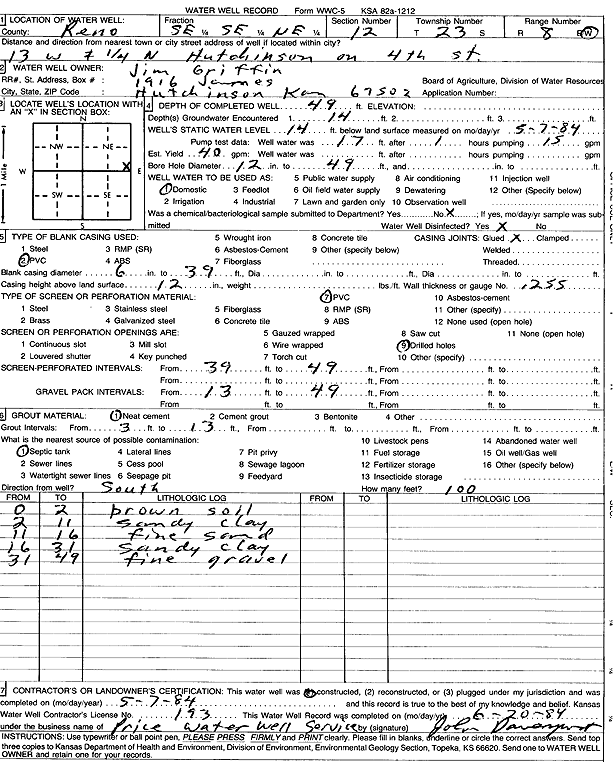 WATER WELL RECORD Form WWC-5 KSA 82a-1212
1 LOCATION OF WATER WELL: Fraction Section Number Township Number Range Number
County: Reno SE ¼ SE ¼ NE ¼ 12 T 23 S R 8 E/W
Distance and direction from nearest town or city street address of well if located within city?
13 W & 1/4 N Hutchinson on 4th st.
2 WATER WELL OWNER: Jim Griffin
RR#, St. Address, Box # : 1916 James Board of Agriculture, Division of Water Resources
City, State, ZIP Code : Hutchinson Kan 67502 Application Number:
3 LOCATE WELL'S LOCATION WITH AN "X" IN SECTION BOX:
N
NW NE
W X E
SW SE
S
1 Mile
4 DEPTH OF COMPLETED WELL 49 ft. ELEVATION:
Depth(s) Groundwater Encountered 1. 14 ft. 2. ft. 3. ft.
WELL'S STATIC WATER LEVEL 14 ft. below land surface measured on mo/day/yr 5-7-84
Pump test data: Well water was 17 ft. after 1 hours pumping 15 gpm
Est. Yield 40 gpm: Well water was ft. after hours pumping gpm
Bore Hole Diameter 12 in. to 49 ft., and in. to ft.
WELL WATER TO BE USED AS: 5 Public water supply 8 Air conditioning 11 Injection well
1 Domestic 3 Feedlot 6 Oil field water supply 9 Dewatering 12 Other (Specify below)
2 Irrigation 4 Industrial 7 Lawn and garden only 10 Observation well
Was a chemical/bacteriological sample submitted to Department? Yes No X ; If yes, mo/day/yr sample was submitted
Water Well Disinfected? Yes X No
5 TYPE OF BLANK CASING USED: 5 Wrought iron 8 Concrete tile CASING JOINTS: Glued X Clamped
1 Steel 3 RMP (SR) 6 Asbestos-Cement 9 Other (specify below) Welded
2 PVC 4 ABS 7 Fiberglass Threaded
Blank casing diameter 6 in. to 39 ft., Dia in. to ft., Dia in. to ft.
Casing height above land surface 12 in., weight lbs./ft. Wall thickness or gauge No. .255
TYPE OF SCREEN OR PERFORATION MATERIAL: 7 PVC 10 Asbestos-cement
1 Steel 3 Stainless steel 5 Fiberglass 8 RMP (SR) 11 Other (specify)
2 Brass 4 Galvanized steel 6 Concrete tile 9 ABS 12 None used (open hole)
SCREEN OR PERFORATION OPENINGS ARE: 5 Gauzed wrapped 8 Saw cut 11 None (open hole)
1 Continuous slot 3 Mill slot 6 Wire wrapped 9 Drilled holes
2 Louvered shutter 4 Key punched 7 Torch cut 10 Other (specify)
SCREEN-PERFORATED INTERVALS: From 39 ft. to 49 ft., From ft. to ft.
From ft. to ft., From ft. to ft.
GRAVEL PACK INTERVALS: From 13 ft. to 49 ft., From ft. to ft.
From ft. to ft., From ft. to ft.
6 GROUT MATERIAL: 1 Neat cement 2 Cement grout 3 Bentonite 4 Other
Grout Intervals: From 3 ft. to 13 ft., From ft. to ft., From ft. to ft.
What is the nearest source of possible contamination: 10 Livestock pens 14 Abandoned water well
1 Septic tank 4 Lateral lines 7 Pit privy 11 Fuel storage 15 Oil well/Gas well
2 Sewer lines 5 Cess pool 8 Sewage lagoon 12 Fertilizer storage 16 Other (specify below)
3 Watertight sewer lines 6 Seepage pit 9 Feedyard 13 Insecticide storage
Direction from well? South How many feet? 100
FROM TO LITHOLOGIC LOG FROM TO LITHOLOGIC LOG
0 2 brown soil
2 11 sandy clay
11 16 fine sand
16 31 sandy clay
31 49 fine gravel
7 CONTRACTOR'S OR LANDOWNER'S CERTIFICATION: This water well was (1) constructed, (2) reconstructed, or (3) plugged under my jurisdiction and was
completed on (mo/day/year) 5-7-84 and this record is true to the best of my knowledge and belief. Kansas
Water Well Contractor's License No. 193 This Water Well Record was completed on (mo/day/yr) 6-20-84
under the business name of Price Water Well Service by (signature) John Davenport
INSTRUCTIONS: Use typewriter or ball point pen, PLEASE PRESS FIRMLY and PRINT clearly. Please fill in blanks, underline or circle the correct answers. Send top
three copies to Kansas Department of Health and Environment, Division of Environment, Environmental Geology Section, Topeka, KS 66620. Send one to WATER WELL
OWNER and retain one for your records.